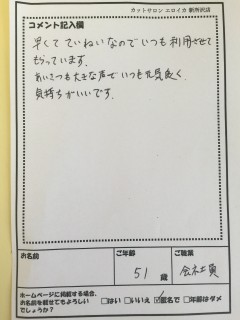 カットサロン エロイカ 新所沢店
コメント記入欄
早くて ていねいなのでいつも利用させて
もらっています。
あいさつも大きな声でいつも元気良く、
気持ちがいいです。
お名前
ご年齢
ご職業
51 歳
会社員
ホームページに掲載する場合、
お名前を載せてもよろしい
でしょうか?
□はい □いいえ ☑匿名で □年齢はダメ